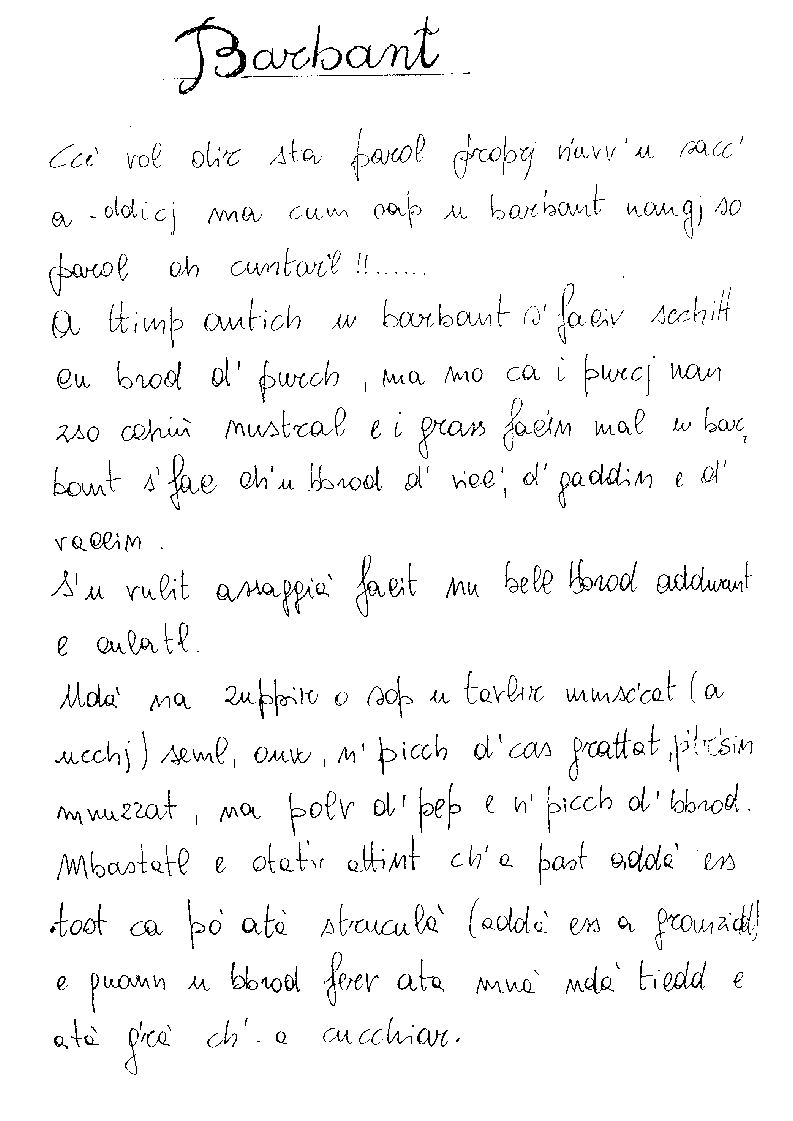 Barbant
Ccè vol dir sta parol propj nuvv'u sacc'
a - ddicj ma cum sap u barbant nangj so
parol ch cuntar'l !!......
A ttimp antich u barbant s' faciv schitt
cu brod d' purch , ma mo ca i purcj nan
zso cchiù nustral e i grass facin mal u bar,
bant s' fac ch'u bbrod d' vicc', d' gaddin e d'
vaccin .
S'u vulit assaggià facit nu bell bbrod addurant
e culatl.
Mdà na zuppir o sop u tavlir mmscat (a
ucchj) seml, ouv, n' picch d' cas grattat, ptrsin
mnuzzat , na polv d' pep e n' picch d' bbrod.
Mbastatl e stativ attint ch' a past addà ess
tost ca pò atà struculà (addà ess a granzidd)
e quann u bbrod ferv ata mnà ndà tiedd e
atà grà ch' - a cucchiar.